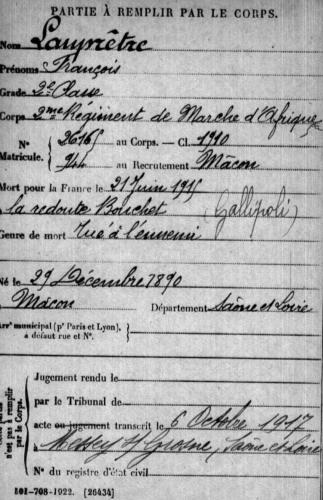 PARTIE À REMPLIR PAR LE CORPS.
Nom Lauprêtre
Prénoms François
Grade 2e Classe
Corps 2me Régiment de Marche d'Afrique
N° 26765 au Corps. — Cl. 1910
Matricule. 944 au Recrutement Mâcon
Mort pour la France le 21 Juin 1915
la redoute Bouchet (Gallipoli)
Genre de mort Tué à l'ennemi
Né le 29 Décembre 1890
Mâcon Département Saône et Loire
Arrt municipal (pr Paris et Lyon),
à défaut rue et N°.
Jugement rendu le
par le Tribunal de
acte ou jugement transcrit le 6 Octobre 1917
à Messey s/ Grosne, Saône et Loire
N° du registre d'état civil
n'est pas à remplir
par le Corps.
101-708-1922. [26434]